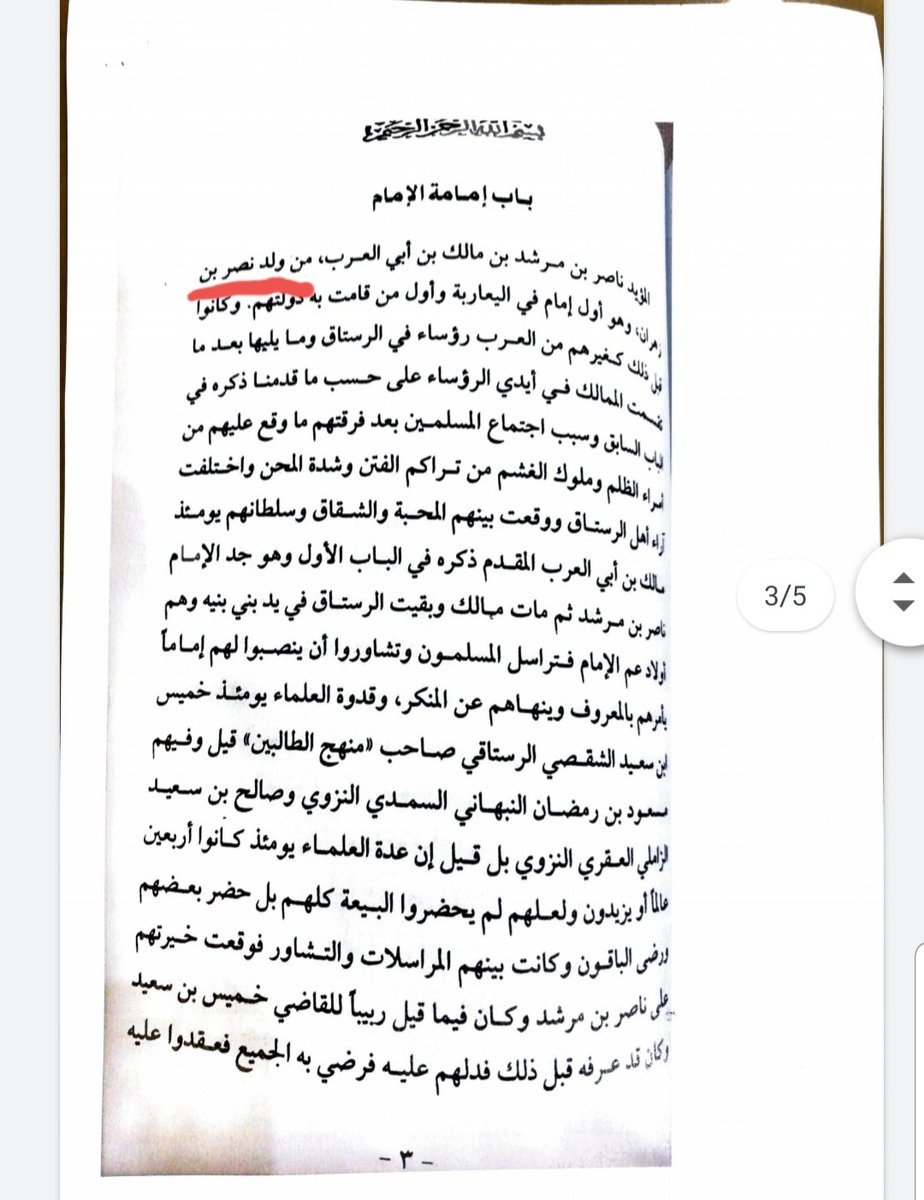 بسم الله الرحمن الرحيم
باب إمامة الإمام
المؤيد ناصر بن مرشد بن مالك بن أبي العرب، من ولد نصر بن
زهران، وهو أول إمام في اليعاربة وأول من قامت به دولتهم. وكانوا
قبل ذلك كغيرهم من العرب رؤساء في الرستاق وما يليها بعد ما
تقسمت الممالك في أيدي الرؤساء على حسب ما قدمنا ذكره في
الباب السابق وسبب اجتماع المسلمين بعد فرقتهم ما وقع عليهم من
أمراء الظلم وملوك الغشم من تراكم الفتن وشدة المحن واختلفت
آراء أهل الرستاق ووقعت بينهم المحبة والشقاق وسلطانهم يومئذ
مالك بن أبي العرب المقدم ذكره في الباب الأول وهو جد الإمام
ناصر بن مرشد ثم مات مالك وبقيت الرستاق في يد بني بنيه وهم
أولاد عم الإمام فتراسل المسلمون وتشاوروا أن ينصبوا لهم إماماً
يأمرهم بالمعروف وينهاهم عن المنكر، وقدوة العلماء يومئذ خميس
ابن سعيد الشقصي الرستاقي صاحب «منهج الطالبين» قيل وفيهم
مسعود بن رمضان النبهاني السمدي النزوي وصالح بن سعيد
الزاملي العقري النزوي بل قيل إن عدة العلماء يومئذ كانوا أربعين
عالماً أو يزيدون ولعلهم لم يحضروا البيعة كلهم بل حضر بعضهم
ورضى الباقون وكانت بينهم المراسلات والتشاور فوقعت خيرتهم
على ناصر بن مرشد وكان فيما قيل ربيباً للقاضي خميس بن سعيد
وكان قد عرفه قبل ذلك فدلهم عليه فرضي به الجميع فعقدوا عليه
- ٣ -
3/5